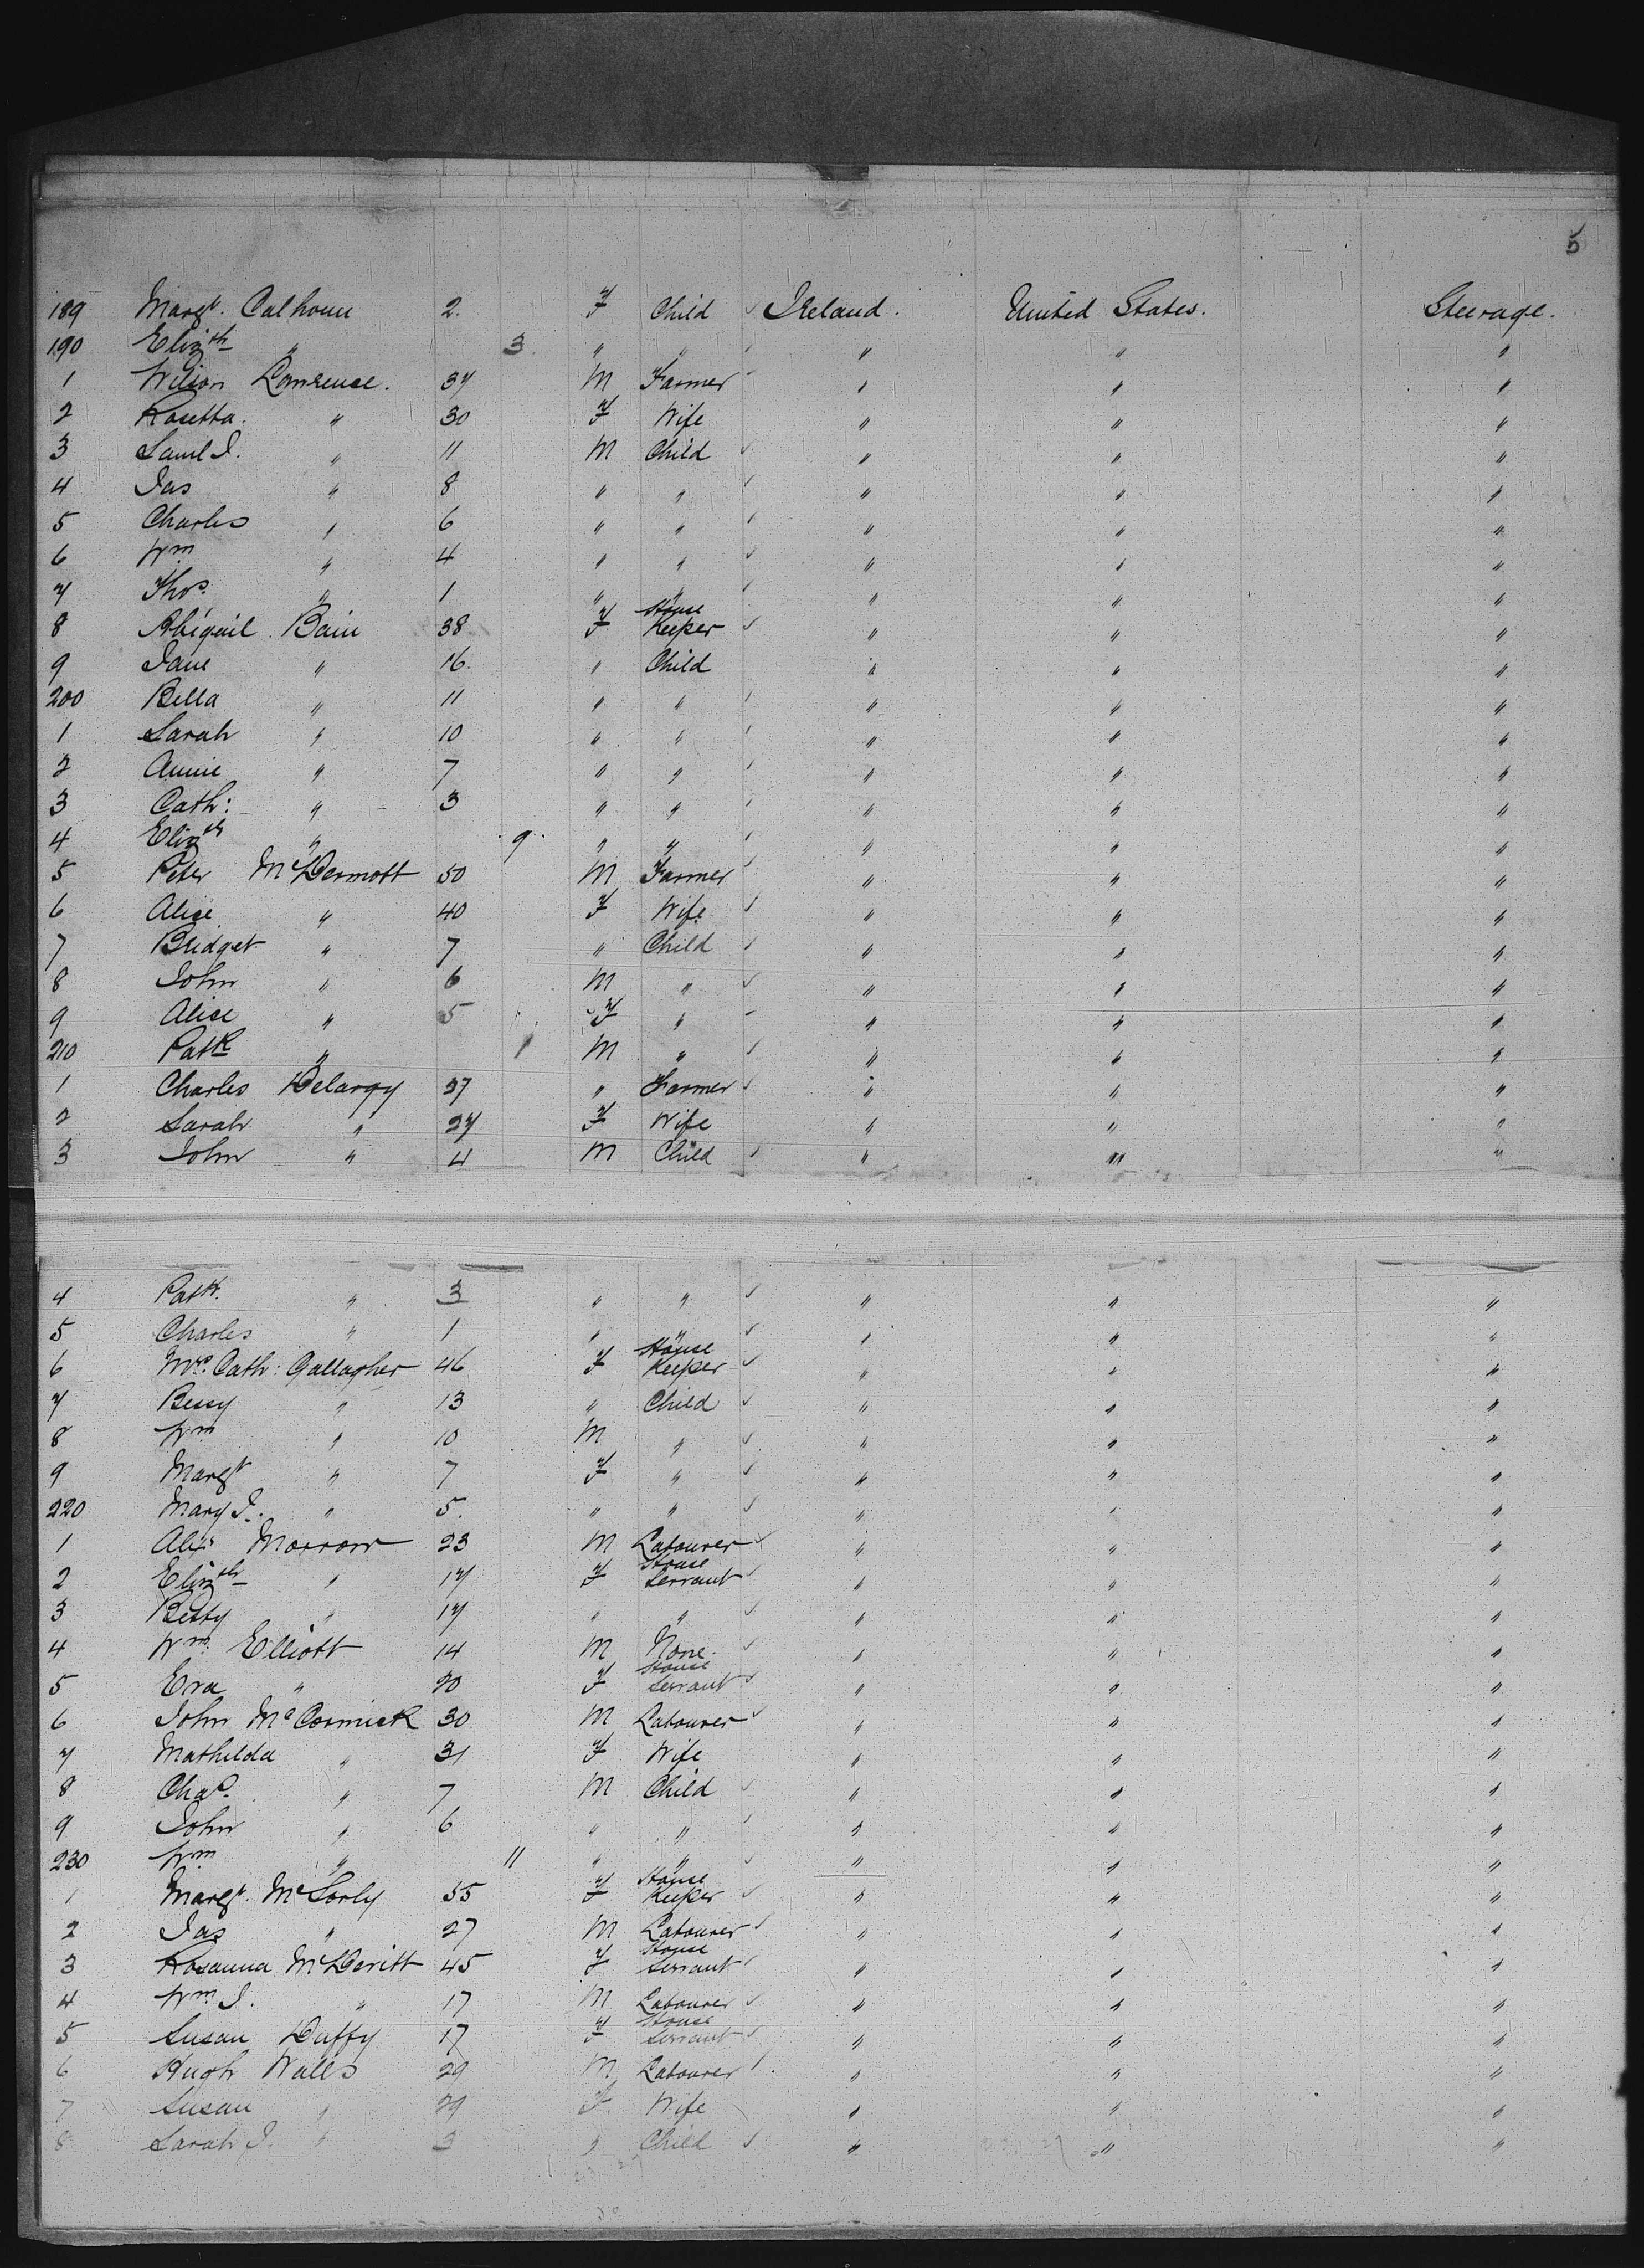 5
189 Margt. Calhoun 2. F Child Ireland. United States. Steerage.
190 Elizth " 3. " " " " "
1 Wilson Lawrence. 37 M Farmer " " "
2 Rosetta. " 30 F Wife " " "
3 Saml J. " 11 M Child " " "
4 Jas " 8 " " " " "
5 Charles " 6 " " " " "
6 Wm " 4 " " " " "
7 Thos. " 1 " " " " "
8 Abigail Bain 38 F House Keeper " " "
9 Jane " 16. " Child " " "
200 Bella " 11 " " " " "
1 Sarah " 10 " " " " "
2 Annie " 7 " " " " "
3 Cath: " 3 " " " " "
4 Elizth " 9 " " " " "
5 Peter McDermott 50 M Farmer " " "
6 Alice " 40 F Wife " " "
7 Bridget " 7 " Child " " "
8 John " 6 M " " " "
9 Alice " 5 F " " " "
210 Patk " 1 M " " " "
1 Charles Delargy 27 " Farmer " " "
2 Sarah " 27 F Wife " " "
3 John " 4 M Child " " "
4 Patk. " 3 " " " " "
5 Charles " 1 " " " " "
6 Mrs. Cath: Gallagher 46 F House Keeper " " "
7 Bessy " 13 " Child " " "
8 Wm " 10 M " " " "
9 Margt " 7 F " " " "
220 Mary J. " 5. " " " " "
1 Alex Morrow 23 M Labourer " " "
2 Elizth " 17 F House Servant " " "
3 Betty " 17 " " " " "
4 Wm. Elliott 14 M None. " " "
5 Eva " 20 F House Servant " " "
6 John McCormick 30 M Labourer " " "
7 Mathilda " 31 F Wife " " "
8 Chas. " 7 M Child " " "
9 John " 6 " " " " "
230 Wm " 11 " " " " "
1 Margt. McSorly 55 F House Keeper " " "
2 Jas " 27 M Labourer " " "
3 Rosanna McDevitt 45 F House Servant " " "
4 Wm. J. " 17 M Labourer " " "
5 Susan Duffy 17 F House Servant " " "
6 Hugh Walls 29 M Labourer " " "
7 Susan " 29 F. Wife " " "
8 Sarah J. " 3 " Child " " "